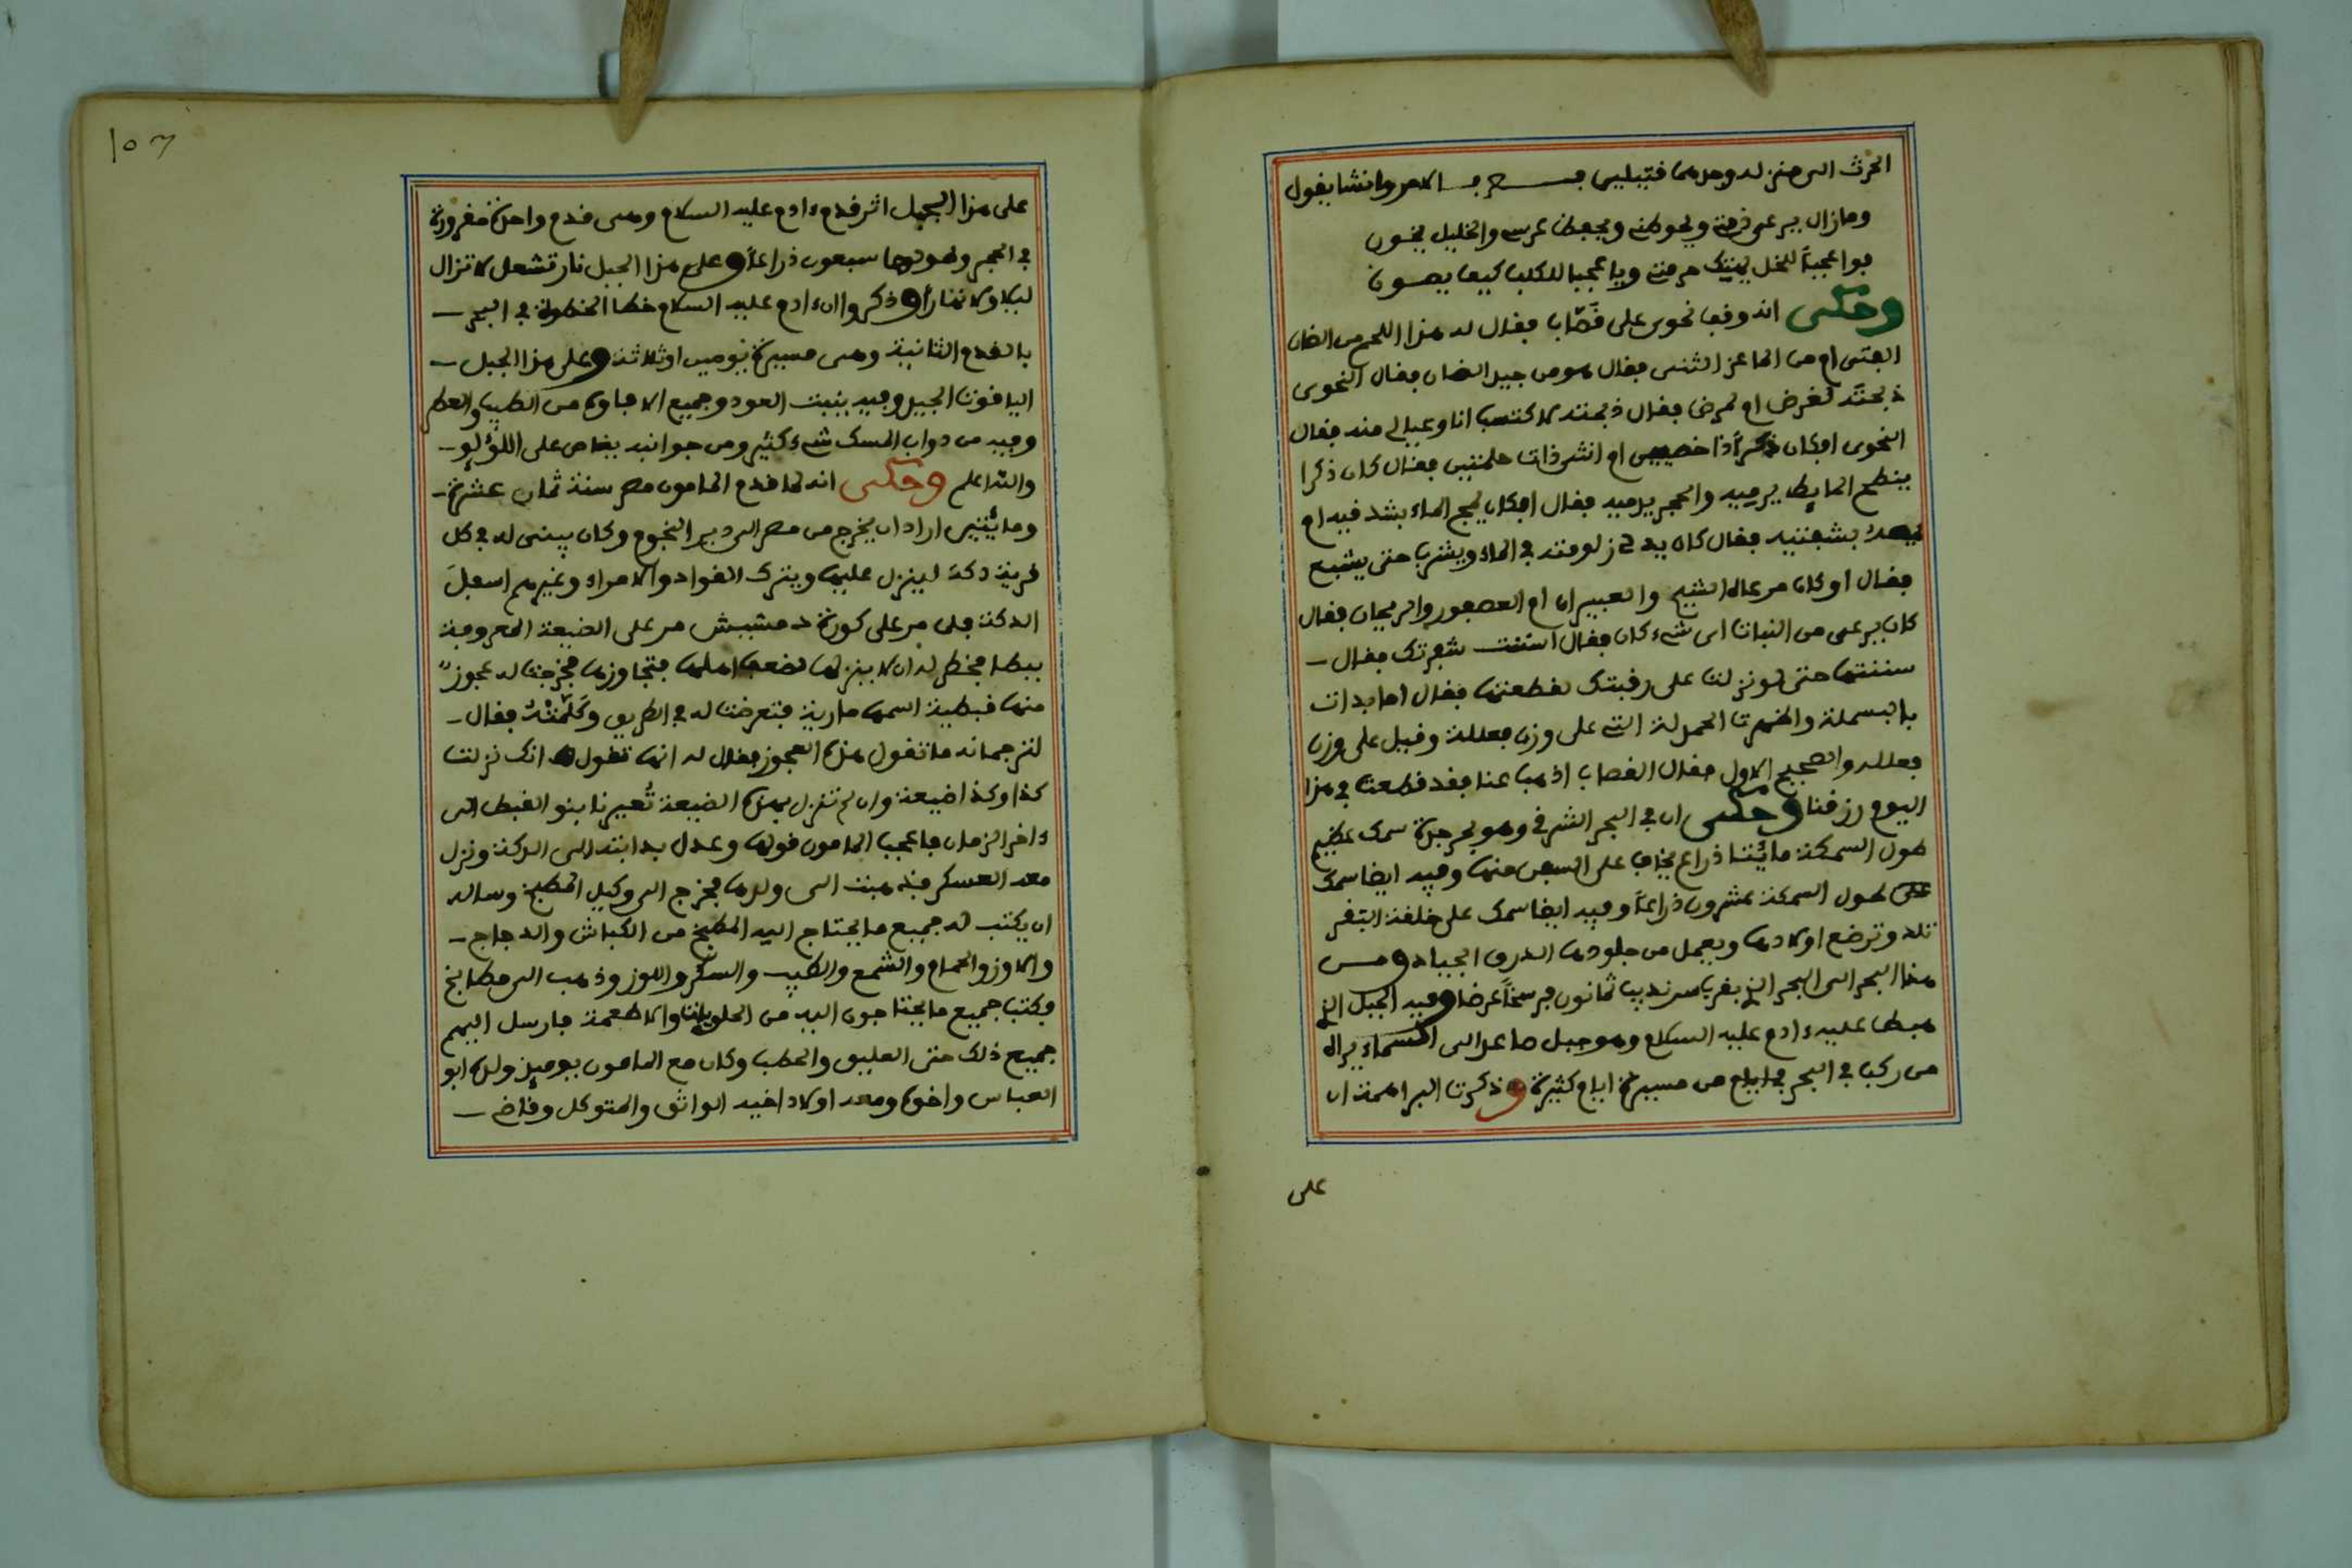 الحرث الى منزله وجدهما قتيلين فعرف الامر وانشا يقول
وما زال يرعى ذمتي ويحوطني ويحفظ عرسي والخليل يخون
فواعجباً للخل يهتك حرمتي ويا عجبا للكلب كيف يصون
وحكى انه وقف نحوى على قصّاب فقال له هذا اللحم من الضان
الفتى ام من الماعز الثنى فقال هو من جيد الضان فقال النحوى
ذبحته لغرض ام لمرض فقال ذبحته لاكتسب انا وعيالى منه فقال
النحوى افكان ذكراً ذا خصيتين ام انثى ذات حلمتين فقال كان ذكرا
ينطح الحايط يرميه والحجر يرميه فقال افكان يمج الماء بشدقيه ام
بشفتيه فقال كان يدلى زلومته في الماء ويشرب حتى يشبع
فقال اوكان مرعاه الشيح والعبيران ام العصفور والريحان فقال
كان يرعى من النبات اى شيء كان فقال اسننت شفرتك فقال
سننتها حتى لو نزلت على رقبتك لقطعتها فقال اما بدات
بالبسملة واظهرت الحمدلة التي على وزن فعللة وقيل على وزن
فعللله والصحيح الاول فقال القصاب اذهب عنا فقد قطعت في هذا
اليوم رزقنا وحكى ان في البحر الشرقي وهو بحر جدة سمك عظيم
طول السمكة مائتا ذراع يخاف على السفن منها وفيه ايضا سمك
على طول السمكة عشرون ذراعاً وفيه ايضا سمك على خلقة البقر
تلد وترضع اولادها ويعمل من جلودها الدرق الجياد ومن
هذا البحر الى البحر الذى بقرب سرنديب ثمانون فرسخاً عرضا وفيه الجبل الذى
هبط عليه ءادم عليه السلام وهو جبل صاعد الى السماء يراه
من ركب في البحر من مسيرة ايام كثيرة وذكرت البراهمة ان
على
١٥٦
على هذا الجبل اثر قدم ءادم عليه السلام وهى قدم واحدة مغروزة
في الحجر وطولها سبعون ذراعاً وعلى هذا الجبل نار تشعل لا تزال
ليلا ولا نهاراً وذكروا ان ءادم عليه السلام خطا الخطوة في البحر
بالقدم الثانية وهى مسيرة يومين او ثلاثة وعلى هذا الجبل
الياقوت الجيد وفيه ينبت العود وجميع الافاوه من الطيب والعطر
وفيه من دواب المسك شيء كثير ومن جوانبه يغاص على اللؤلؤ
والله اعلم وحكى انه لما قدم المامون مصر سنة ثمان عشرة
ومائتين اراد ان يخرج من مصر الى دير النجوم وكان يبنى له في كل
قرية دكة لينزل عليها ويترك القواد والامراء وغيرهم اسفل
الدكة فلما مر على كورة دمشيش مر على الضيعة المعروفة
ببطا فخطر له ان لا ينزلها لضعف اهلها فتجاوزها فخرجت له عجوز
منها قبطية اسمها مارية فتعرضت له في الطريق وكلّمته فقال
لترجمانه ما تقول هذه العجوز فقال له انها تقول انك نزلت
كذا وكذا ضيعة وان لم تنزل بهذه الضيعة تُعيرنا بنو القبط الى
ءاخر الزمان فاعجب المامون قولها وعدل بدابته الى الدكة ونزل
معه العسكر فذهبت الى ولدها فخرج الى وكيل المطبخ وساله
ان يكتب له جميع ما يحتاج اليه المطبخ من الكباش والدجاج
والاوز والحمام والشمع والطيب والسكر واللوز وذهب الى مطابخ
فكتب جميع ما يحتاجون اليه من الحلويات والاطعمة فارسل اليهم
جميع ذلك حتى العليق والحطب وكان مع المامون يوميذ ولده ابو
العباس واخوه ومعه اولاد اخيه الواثق والمتوكل وقاض